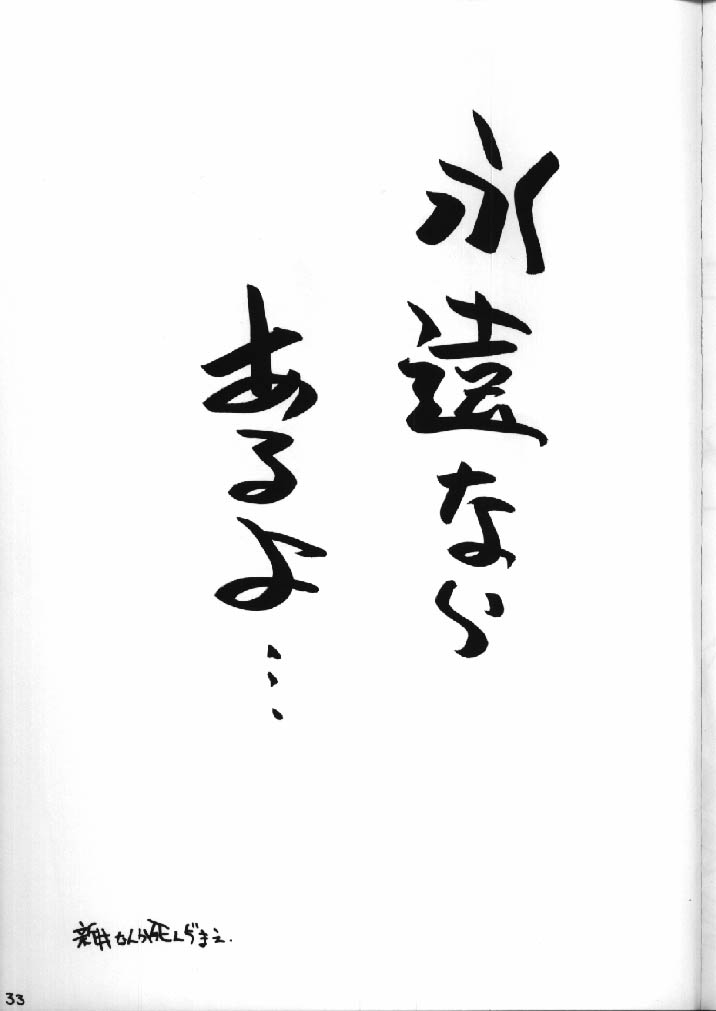 永遠なら
あるよ…
新井なんか死んぢまえ.
33